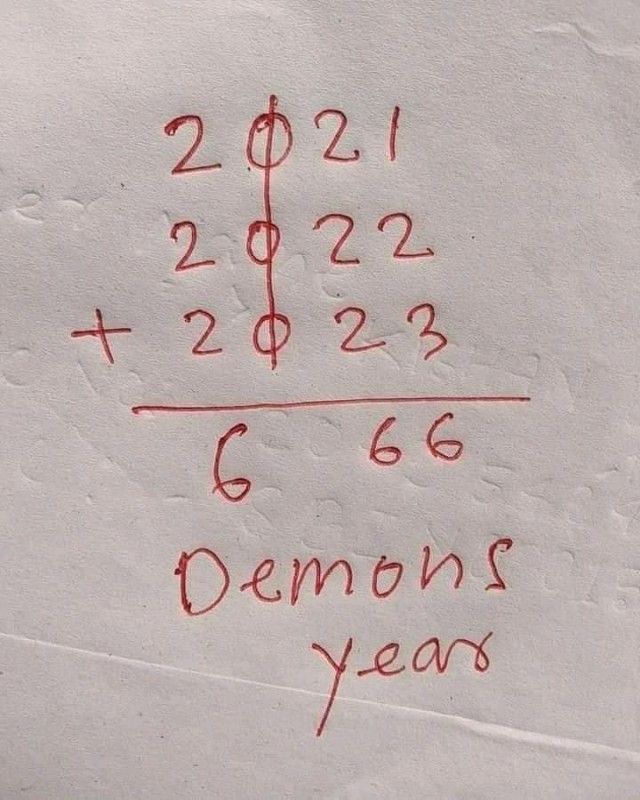 2021
2022
+ 2023
6 66
Demons
year